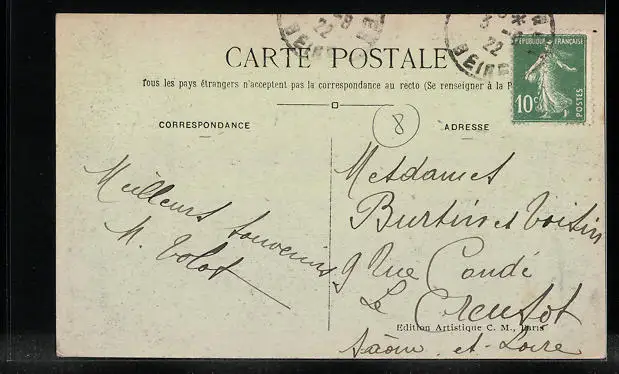 CARTE POSTALE
Tous les pays étrangers n'acceptent pas la correspondance au recto (Se renseigner à la P
CORRESPONDANCE
Meilleurs souvenirs
M. Volot
8
ADRESSE
Mesdames
Burtin et Voisin
9 Rue Condé
Le Creusot
Saône et Loire
Edition Artistique C. M., Paris
RÉPUBLIQUE FRANÇAISE
10c
POSTES
22
22